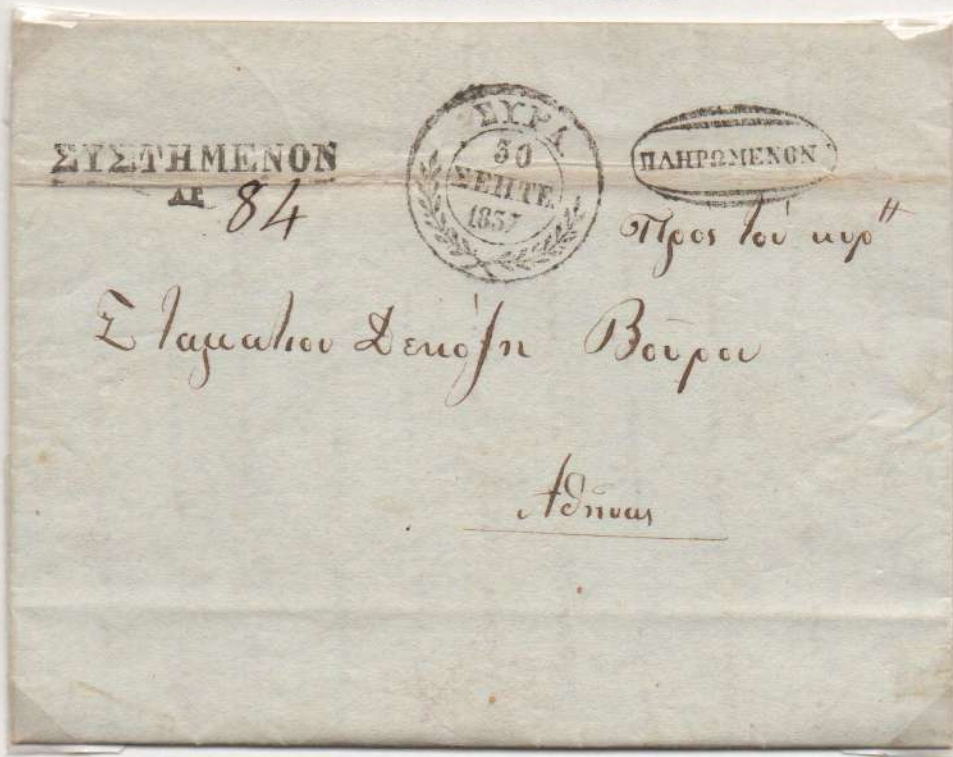 ΣΥΣΤΗΜΕΝΟΝ
ΑΡ 84
ΣΥΡΑ
30
ΣΕΠΤΕ.
1837
ΠΛΗΡΩΜΕΝΟΝ
Προς τον κυρ
Σταματιον Δεκόζη Βούρον
Αθήνας